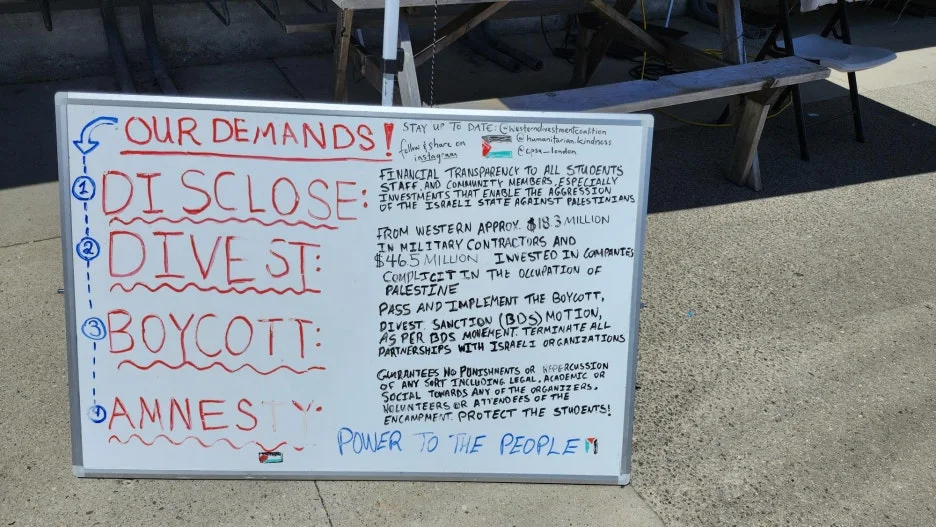 OUR DEMANDS!
STAY UP TO DATE: @westerndivestmentcoalition
follow & share on
instagram
@humanitarian.kindness
@cpsa_london
1 DISCLOSE:
FINANCIAL TRANSPARENCY TO ALL STUDENTS
STAFF, AND COMMUNITY MEMBERS, ESPECIALLY
INVESTMENTS THAT ENABLE THE AGGRESSION
OF THE ISRAELI STATE AGAINST PALESTINIANS
2 DIVEST:
FROM WESTERN APPROX. $18.3 MILLION
IN MILITARY CONTRACTORS AND
$46.5 MILLION INVESTED IN COMPANIES
COMPLICIT IN THE OCCUPATION OF
PALESTINE
3 BOYCOTT:
PASS AND IMPLEMENT THE BOYCOTT,
DIVEST, SANCTION (BDS) MOTION,
AS PER BDS MOVEMENT. TERMINATE ALL
PARTNERSHIPS WITH ISRAELI ORGANIZATIONS
AMNESTY:
GUARANTEES NO PUNISHMENTS OR REPERCUSSION
OF ANY SORT INCLUDING LEGAL, ACADEMIC OR
SOCIAL TOWARDS ANY OF THE ORGANIZERS,
VOLUNTEERS OR ATTENDEES OF THE
ENCAMPMENT. PROTECT THE STUDENTS!
POWER TO THE PEOPLE